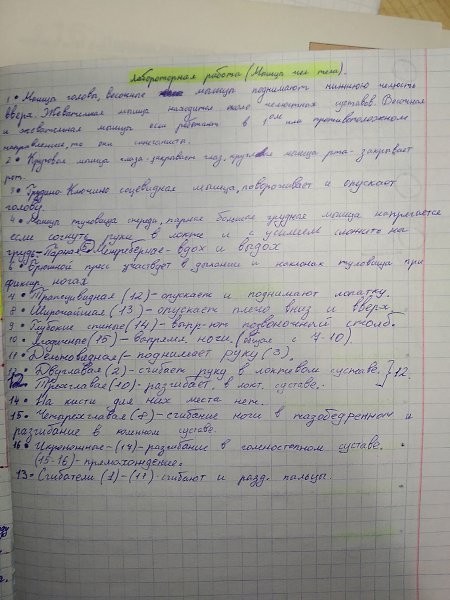 Лабороторная работа (Мышцы чел. тела).
1 • Мышцы головы, височные мышцы поднимают нижнюю челюсть
вверх. Жевательная мышца находится около челюстных суставов. Височная
и жевательная мышцы если работают в 1ом или противоположном
направлении, то они синергисты.
2 • Круговая мышца глаза-закрывает глаз, круговая мышца рта- закрывает
рот.
3 • Грудино Ключично сосцевидная мышца, поворачивает и опускает
голову.
4 • Мышцы туловища спереди, парные большие грудные мышца напрягается
если согнуть руки в локте и с усилием сложить на
грудь. Парная 5 Межреберные- вдох и выдох
6 • Брюшной пресс участвует в дыхании и наклонах туловища при
фиксир. ногах
7 • Трапецивидная (12)-опускает и поднимают лопатку.
8 • Широчайшая (13)- опускает плечо вниз и вверх.
9 • Глубокие спинные (14)- выпр-ют позвоночный столб.
10 • Ягодичные (15)- выпрямл. ноги. (общая с 7-10)
11 • Дельтовидная- поднимает руку (3).
12 • Двуглавая (2)- сгибает руку в локтевом суставе. } 12.
Трехглавая (10)- разгибает, в локт. суставе.
14 • На кисти для них места нет.
15 • Четырехглавая (8)- сгибание ноги в тазобедренном и
разгибание в коленном суставе.
16 • Икроножные- (17)- разгибание в голеностопном суставе.
(15-16)- прямохождение.
13 • Сгибатели (1)-(11)- сгибают и разд. пальцы.